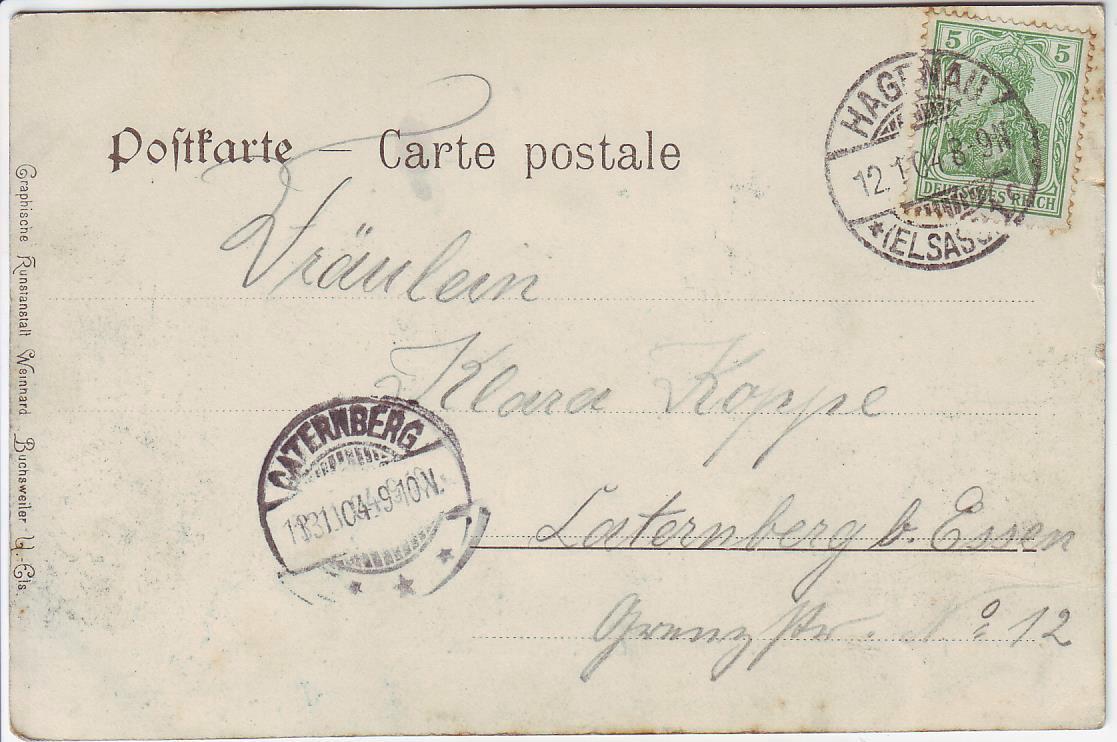 5 5
DEUTSCHES REICH
HAGENAU
12.1.04 8-9N
*(ELSASS)
Postkarte – Carte postale
Fräulein
Klara Koppe
CATERNBERG
13.1.04 9-10N.
Caternberg b. Essen
Grenzstr. No 12
Graphische Kunstanstalt Weinnard Buchsweiler U.-Els.